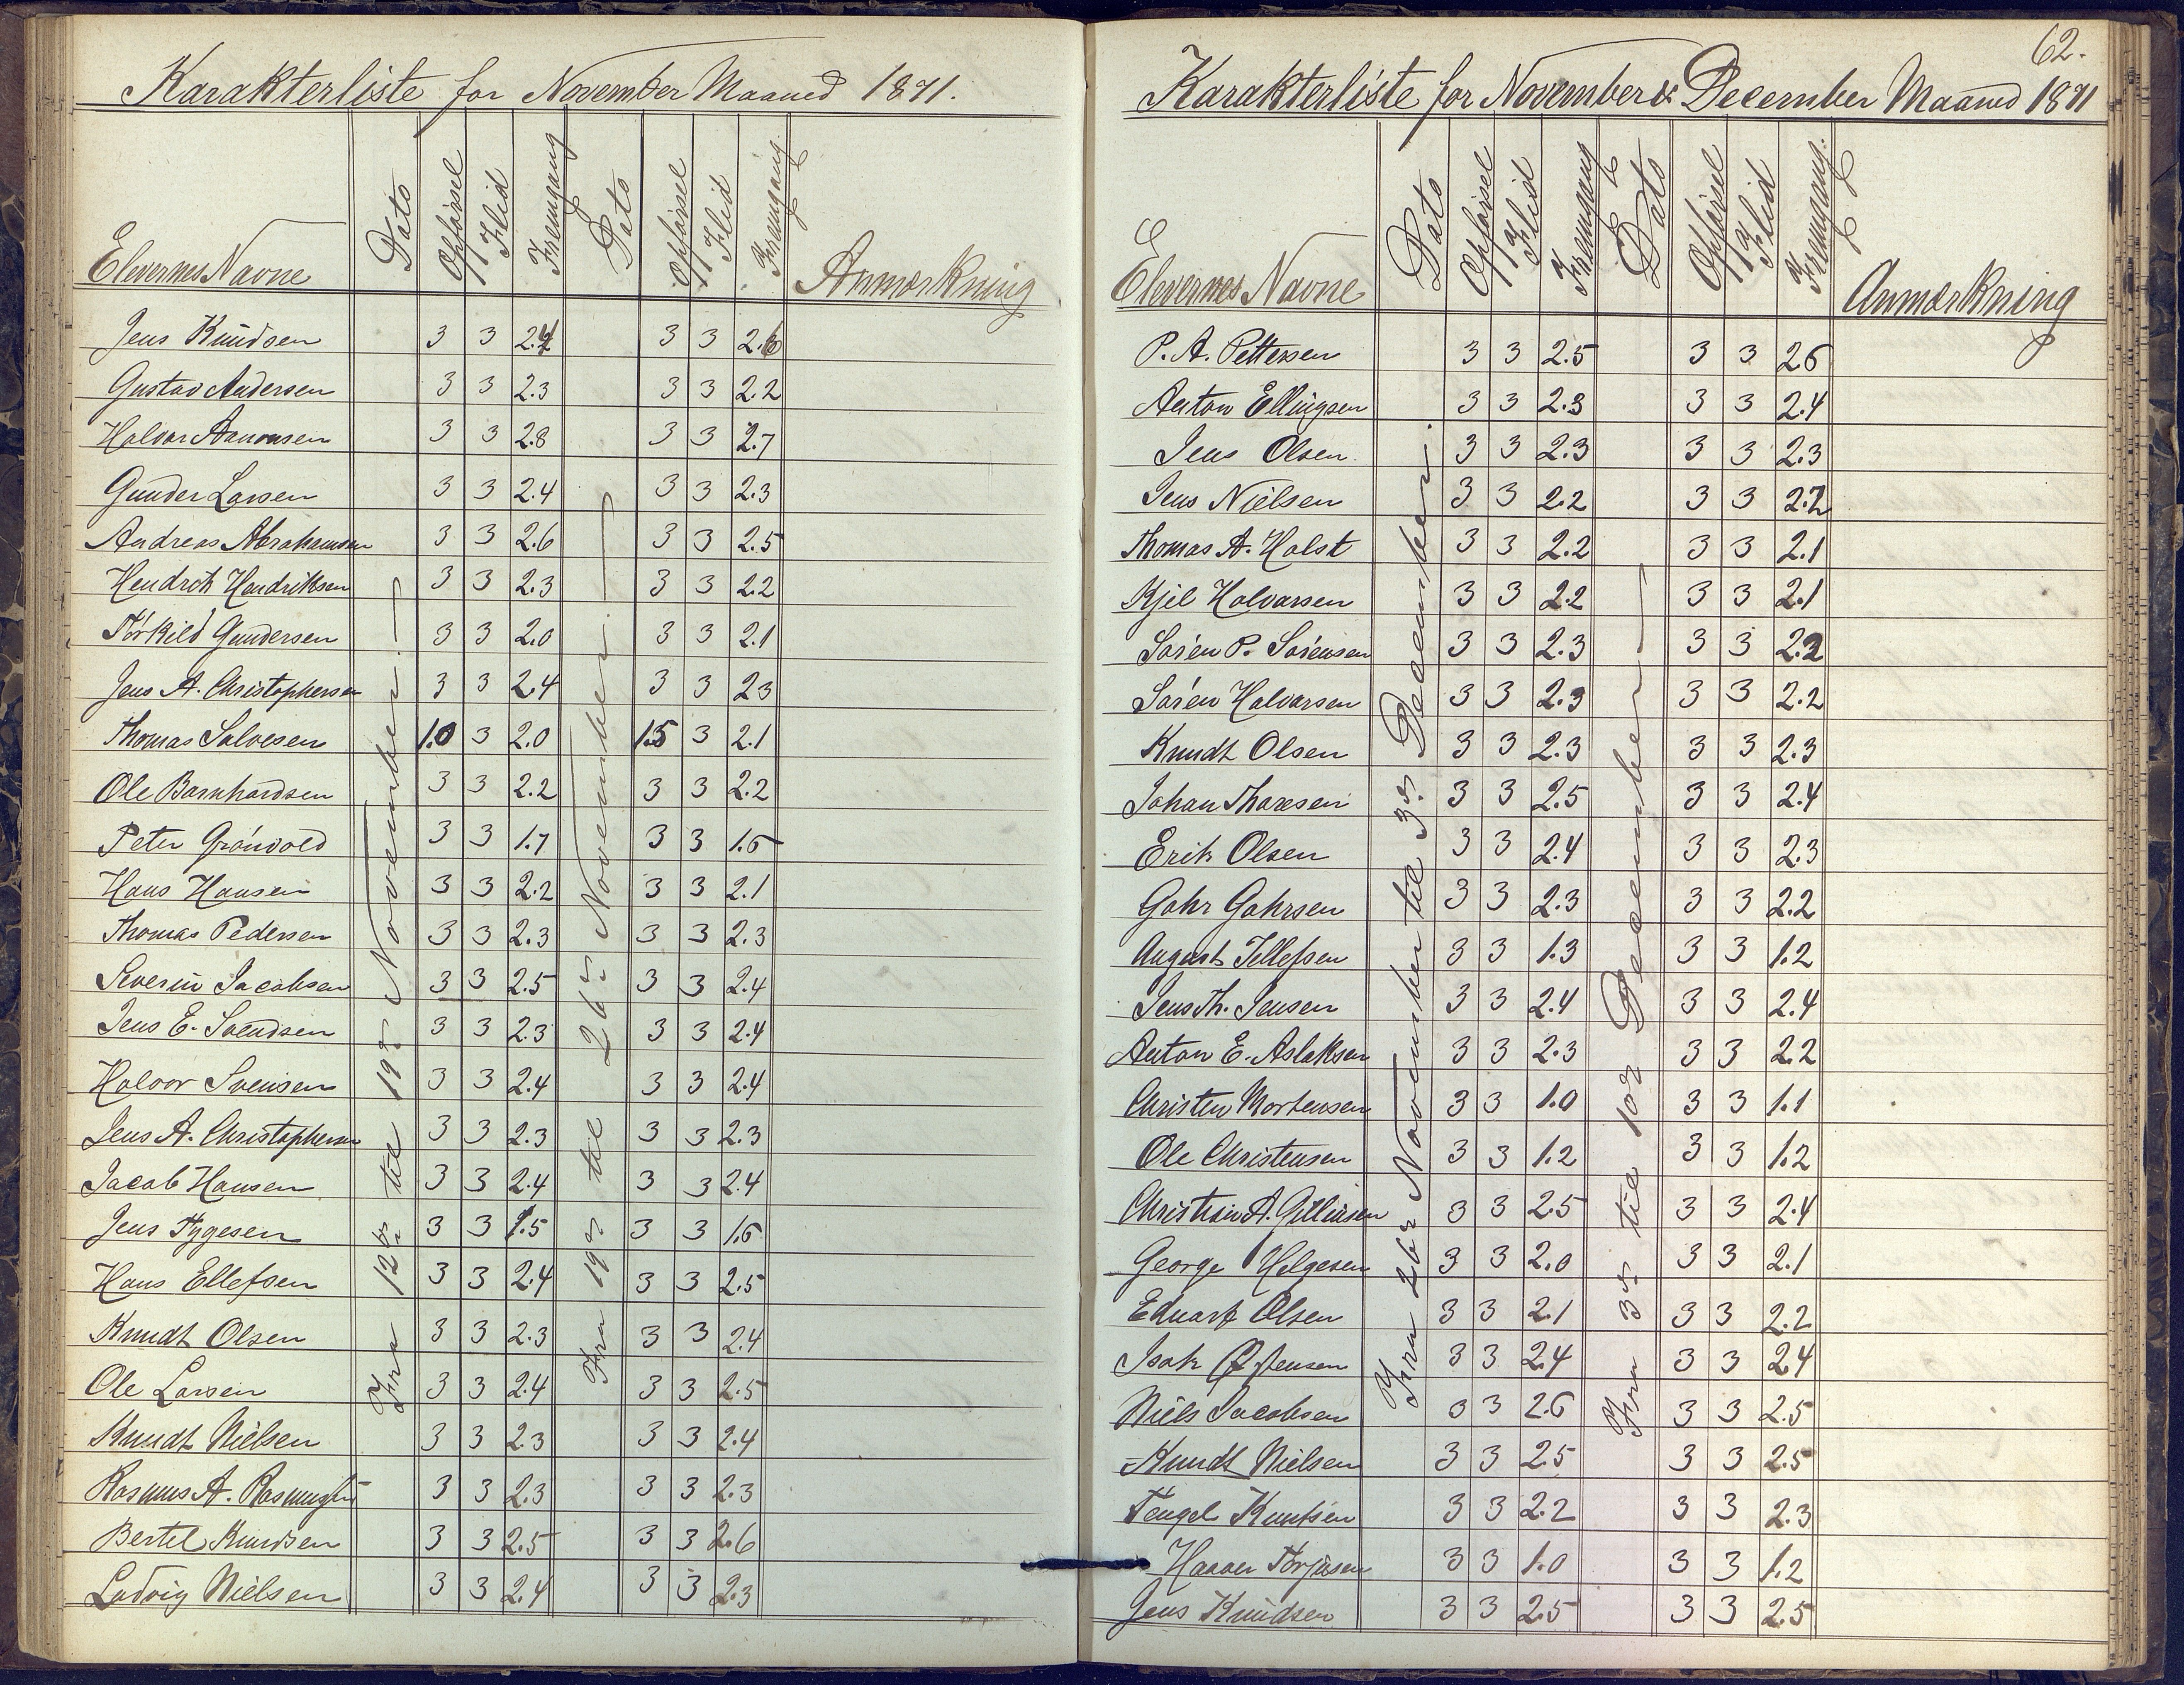 Karakterliste for November Maaned 1871.
Elevernes Navne Dato Opførsel Flid Fremgang Dato Opførsel Flid Fremgang Anmærkning
Fra 12te til 19de November.
Fra 19de til 26de November.
Jens Knudsen 3 3 2.4 3 3 2.6
Gustav Andersen 3 3 2.3 3 3 2.2
Halvor Aanonsen 3 3 2.8 3 3 2.7
Gunder Larsen 3 3 2.4 3 3 2.3
Andreas Abrahamsen 3 3 2.6 3 3 2.5
Hendrik Hendriksen 3 3 2.3 3 3 2.2
Törkild Gundersen 3 3 2.0 3 3 2.1
Jens A. Christophersen 3 3 2.4 3 3 2.3
Thomas Salvesen 1.0 3 2.0 1.5 3 2.1
Ole Barnhardsen 3 3 2.2 3 3 2.2
Peter Grönvold 3 3 1.7 3 3 1.6
Hans Hansen 3 3 2.2 3 3 2.1
Thomas Pedersen 3 3 2.3 3 3 2.3
Severin Jacobsen 3 3 2.5 3 3 2.4
Jens E. Svendsen 3 3 2.3 3 3 2.4
Halvor Svensen 3 3 2.4 3 3 2.4
Jens A. Christophersen 3 3 2.3 3 3 2.3
Jacob Hansen 3 3 2.4 3 3 2.4
Jens Tygesen 3 3 1.5 3 3 1.6
Hans Ellefsen 3 3 2.4 3 3 2.5
Knudt Olsen 3 3 2.3 3 3 2.4
Ole Larsen 3 3 2.4 3 3 2.5
Knudt Nielsen 3 3 2.3 3 3 2.4
Rasmus A. Rasmussen 3 3 2.3 3 3 2.3
Bertel Knudsen 3 3 2.5 3 3 2.6
Ludvig Nielsen 3 3 2.4 3 3 2.3
62.
Karakterliste for November & December Maaned 1871
Elevernes Navne Dato Opførsel Flid Fremgang Dato Opførsel Flid Fremgang. Anmærkning
Fra 26de November til 3de December.
Fra 3de til 10de December
P. A. Pettersen 3 3 2.5 3 3 2.6
Anton Ellingsen 3 3 2.3 3 3 2.4
Jens Olsen 3 3 2.3 3 3 2.3
Jens Nielsen 3 3 2.2 3 3 2.2
Thomas A. Holst 3 3 2.2 3 3 2.1
Kjel Halvorsen 3 3 2.2 3 3 2.1
Sören P. Sörensen 3 3 2.3 3 3 2.2
Sören Halvorsen 3 3 2.3 3 3 2.2
Knudt Olsen 3 3 2.3 3 3 2.3
Johan Thoresen 3 3 2.5 3 3 2.4
Erik Olsen 3 3 2.4 3 3 2.3
Gahr Gahrsen 3 3 2.3 3 3 2.2
August Tellefsen 3 3 1.3 3 3 1.2
Jens Th. Jensen 3 3 2.4 3 3 2.4
Anton E. Aslaksen 3 3 2.3 3 3 2.2
Christen Mortensen 3 3 1.0 3 3 1.1
Ole Christensen 3 3 1.2 3 3 1.2
Christian A. 3 3 2.5 3 3 2.4
George Helgesen 3 3 2.0 3 3 2.1
Eduart Olsen 3 3 2.1 3 3 2.2
Isak 3 3 2.4 3 3 2.4
Niels Jacobsen 3 3 2.6 3 3 2.5
Knudt Nielsen 3 3 2.5 3 3 2.5
Tengel Knutsen 3 3 2.2 3 3 2.3
Torjusen 3 3 1.0 3 3 1.2
Jens Knudsen 3 3 2.5 3 3 2.5